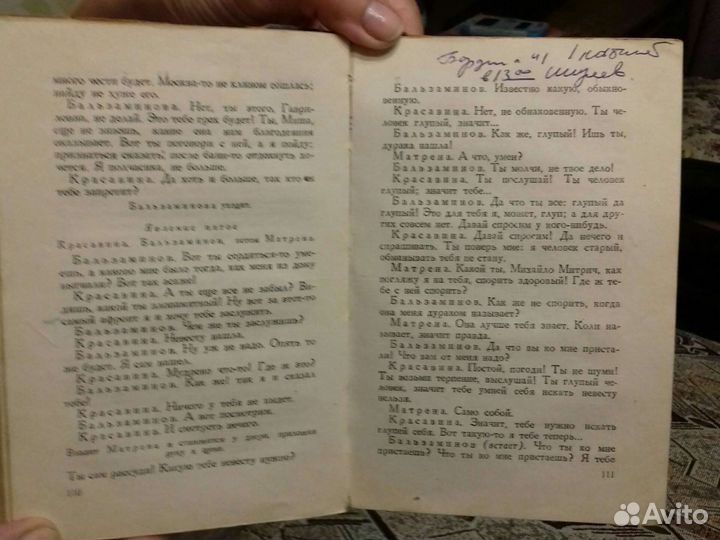 много чести будет. Москва-то не клином сошлась;
найду не хуже его.
Бальзаминова. Нет, ты этого, Гаври-
ловна, не делай. Это тебе грех будет! Ты, Миша,
еще не знаешь, какие она нам благодеяния
оказывает. Вот ты поговори с ней, а я пойду:
признаться сказать, после бани-то отдохнуть хо-
чется. Я полчасика, не больше.
Красавина. Да хоть и больше, так кто ж
тебе запретит?
Бальзаминова уходит.
Явление пятое
Красавина, Бальзаминов, потом Матрена
Бальзаминов. Вот ты сердиться-то уме-
ешь, а каково мне было тогда, как меня из дому
выгнали? Вот так асаже!
Красавина. А ты еще все не забыл? Ви-
дишь, какой ты злопамятный! Ну вот за этот-то
самый афронт я и хочу тебе заслужить.
Бальзаминов. Чем же ты заслужишь?
Красавина. Невесту нашла.
Бальзаминов. Ну уж не надо. Опять то
же будет. Я сам нашел.
Красавина. Мудрено что-то! Где ж это?
Бальзаминов. Как же! так я и сказал
тебе!
Красавина. Ничего у тебя не выдет.
Бальзаминов. А вот посмотрим.
Красавина. И смотреть нечего.
Входит Матрена и становится у двери, приложив
руку к щеке.
Ты сам рассуди! Какую тебе невесту нужно?
110
в 13 00
Бальзаминов. Известно какую, обыкно-
венную.
Красавина. Нет, не обнаковенную. Ты че-
ловек глупый, значит...
Бальзаминов. Как же, глупый! Ишь ты,
дурака нашла!
Матрена. А что, умен?
Бальзаминов. Ты молчи, не твое дело!
Красавина. Ты послушай! Ты человек
глупый; значит тебе...
Бальзаминов. Да что ты все: глупый да
глупый! Это для тебя я, может, глуп; а для дру-
гих совсем нет. Давай спросим у кого-нибудь.
Красавина. Давай спросим! Да нечего и
спрашивать. Ты поверь мне: я человек старый,
обманывать тебя не стану.
Матрена. Какой ты, Михайло Митрич, как
погляжу я на тебя, спорить здоровый! Где ж те-
бе с ней спорить?
Бальзаминов. Как же не спорить, когда
она меня дураком называет?
Матрена. Она лучше тебя знает. Коли на-
зывает, значит правда.
Бальзаминов. Да что вы ко мне приста-
ли! Что вам от меня надо?
Красавина. Постой, погоди! Ты не шуми!
Ты возьми терпение, выслушай! Ты глупый че-
ловек, значит тебе умней себя искать невесту
нельзя.
Матрена. Само собой.
Красавина. Значит, тебе нужно искать
глупей себя. Вот такую-то я тебе теперь...
Бальзаминов (встает). Что ты ко мне
пристаешь? Что ты ко мне пристаешь? Я тебе
111
Avito